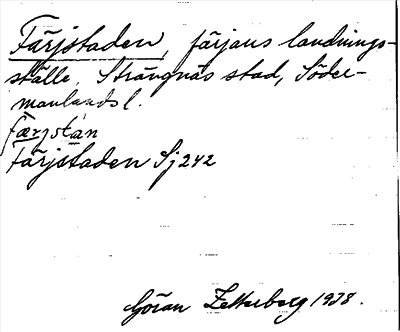 Färjstaden, färjans landnings-
ställe. Strängnäs stad, Söder-
manlands l.
Færjstan
Färjstaden Sj 242
Göran Zetterberg 1938.